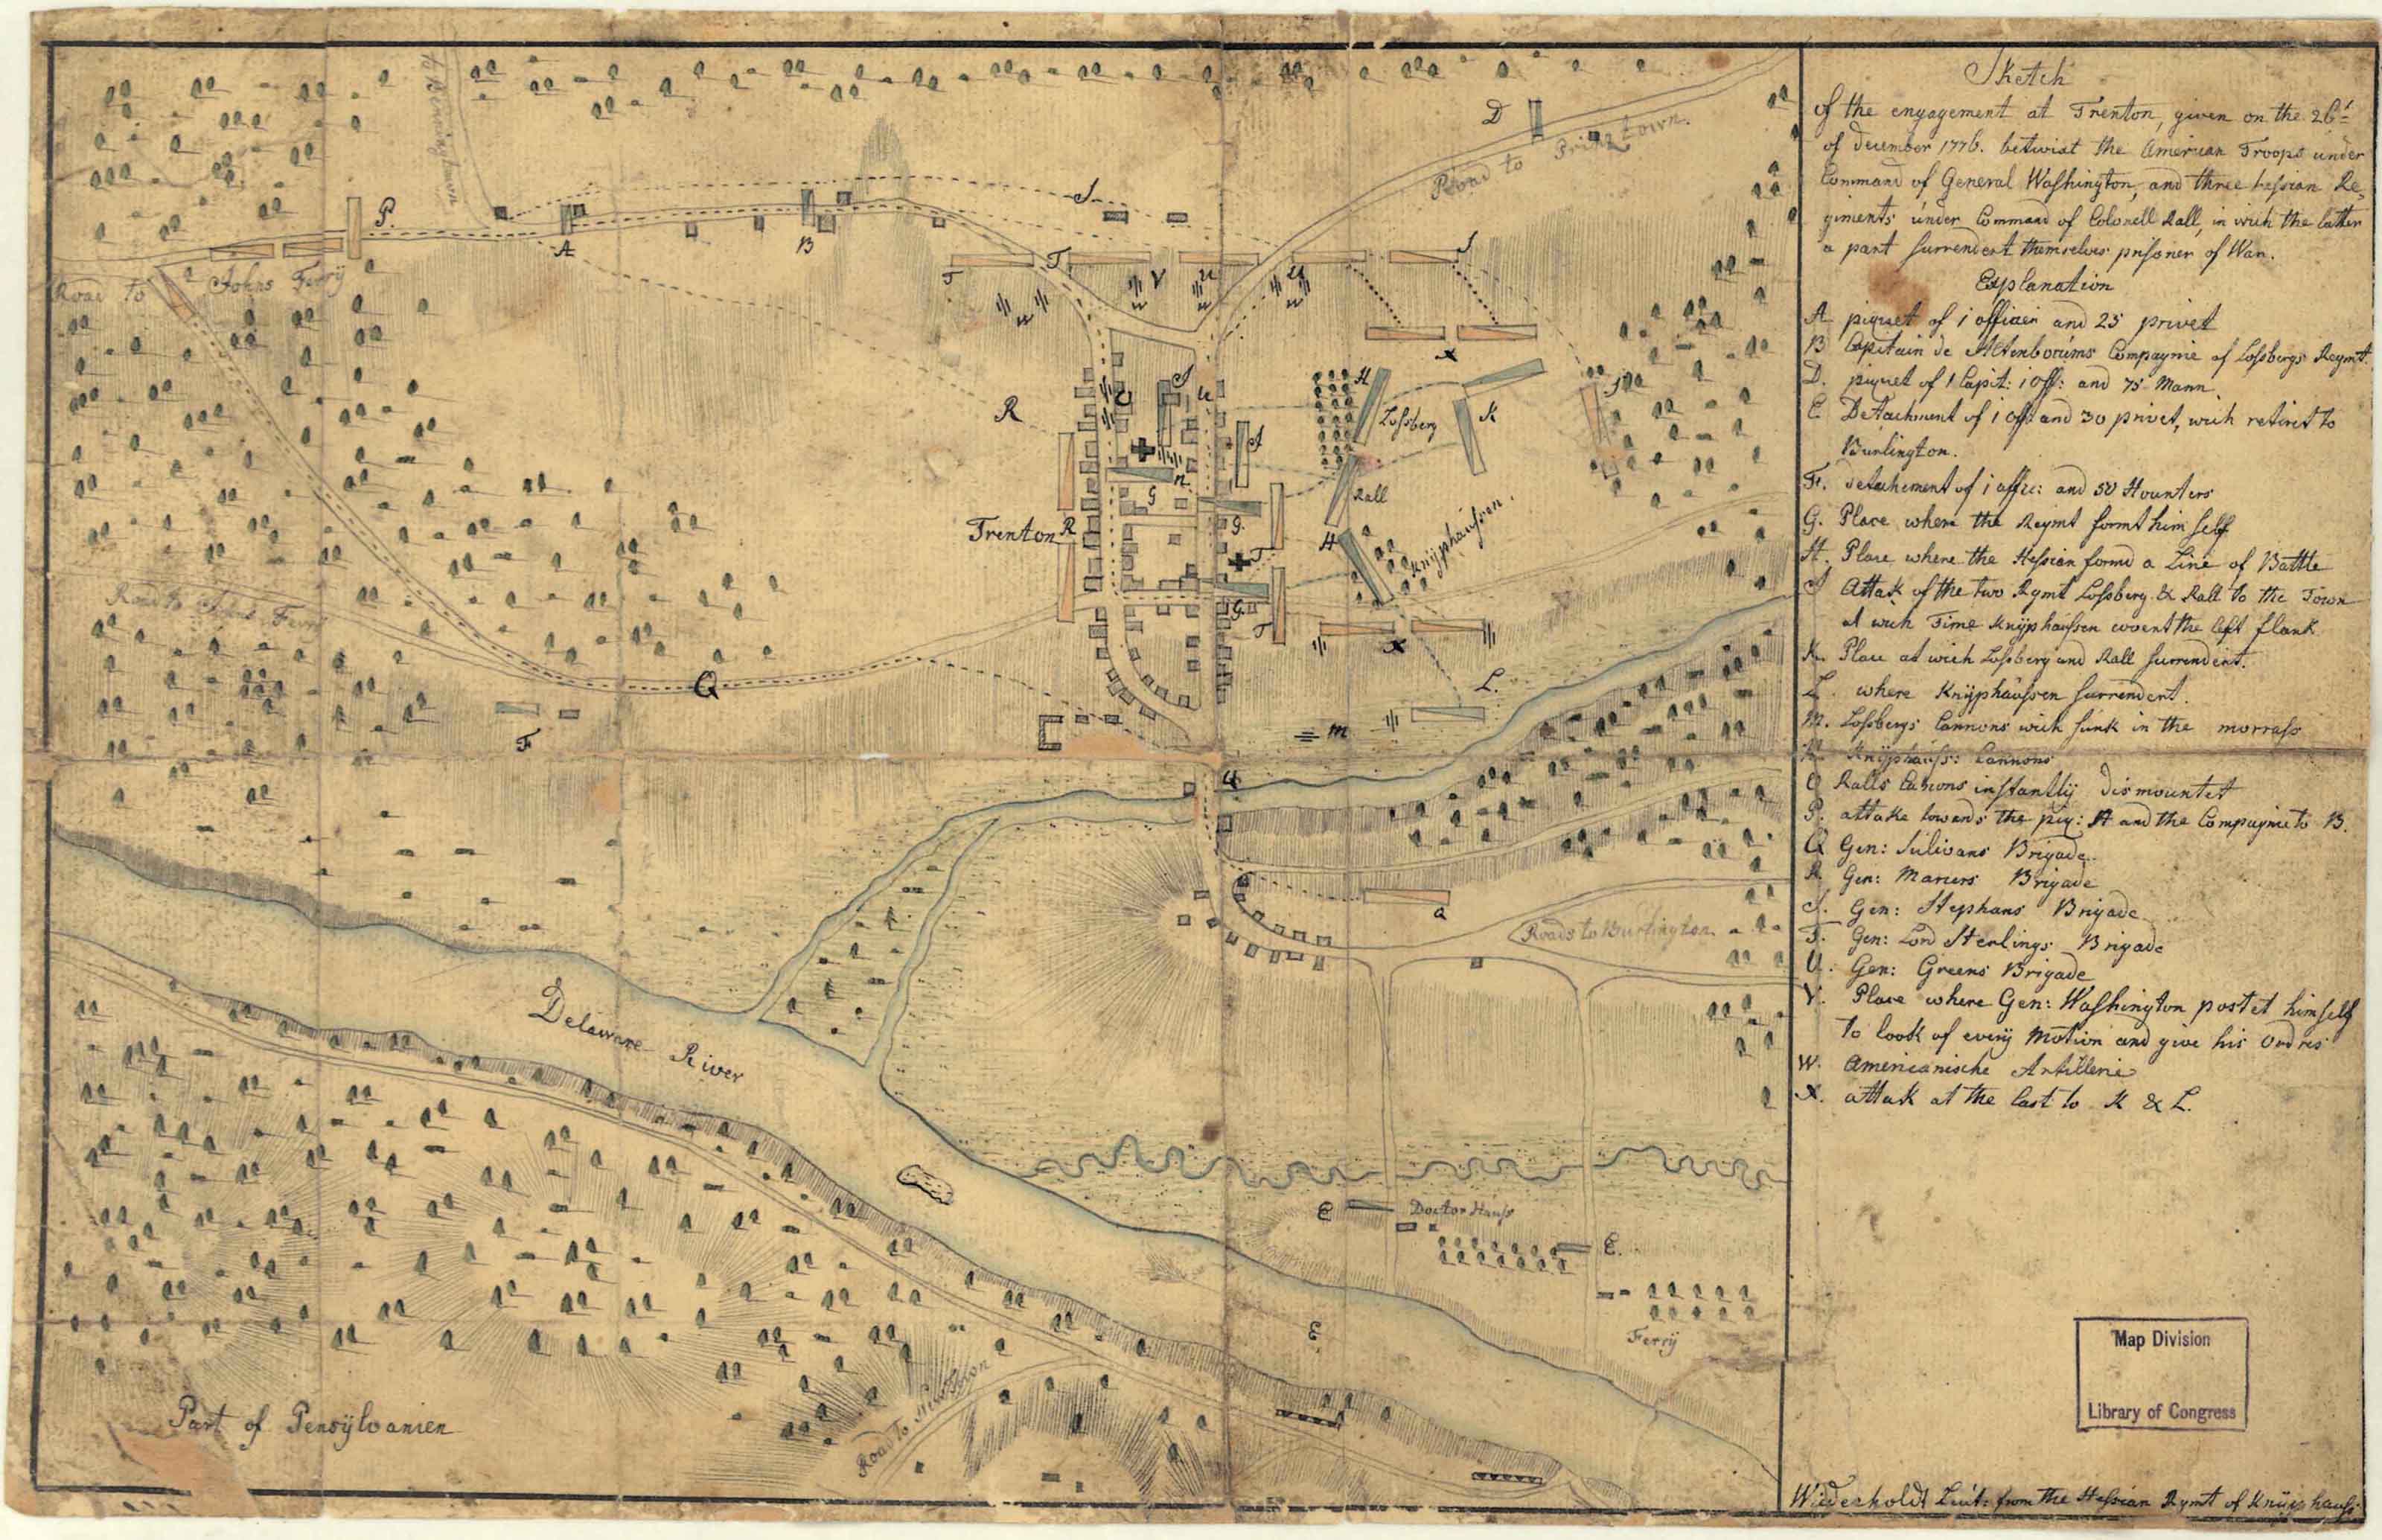 Sketch
of the engagement at Trenton, given on the 26t
of december 1776. betwixt the American Troops under
Command of General Washington, and three hessian Re
giments under Command of Colonell Rall, in wich the latter
a part surrendert themselves prisoner of War.
Explanation
A piquet of 1 officier and 25 privet
B Capitain de Altenbocums Compaynie of Lossbergs Reymt.
D. piquet of 1 Capit: 1 off: and 75 Mann.
E Detachment of 1 off and 30 privet, wich retiret to
Burlington.
F. detachement of 1 offic: and 50 Hounters
G. Place where the Reymt formt him self
H. Place where the Hessian formd a Line of Battle
J Attak of the two Rymt Lossberg & Rall to the Town
at wich Time Knÿphaussen covert the left flank
K. Place at wich Lossberg and Rall surrendert.
L. where Knÿphaüssen surrendert.
M. Lossbergs Cannons wich sunk in the morrass
N Knÿphauss: Cannons
O Ralls Canons instantlÿ dismountet
P. attake towards the piq: A and the Compaynie to B.
Q Gen: Sulivans Brigade.
R. Gen: Marcers Brigade
S. Gen: Stephans Brigade
T. Gen: Lord Sterlings Brigade
U. Gen: Greens Brigade
V. Place where Gen: Washington postet himself
to look of every Motion and give his Ordres
W. Americanische Artillerie
X. attak at the last to K & L.
Map Division
Library of Congress
Wiederholdt Lieut: from the Hessian Rymt of Knÿphauss:
to Penningtown
D
Road to Prinztown.
P.
S
A
B
T
T
V
U
U
S
W
W
W
Road to Johns Ferrÿ
X
R
O
S
U
H
Lossberg
K
S
J
n
G
Rall
Trenton R
G.
H
Knÿphaussen.
T
G.
T
X
Road to Johns Ferrÿ
Q
L.
F
m
Q
Q
Roads to Burlington
Delaware River
E
Doctor Hauss
E.
E
Ferrÿ
Road to Newtown
Part of Pensÿlvanien